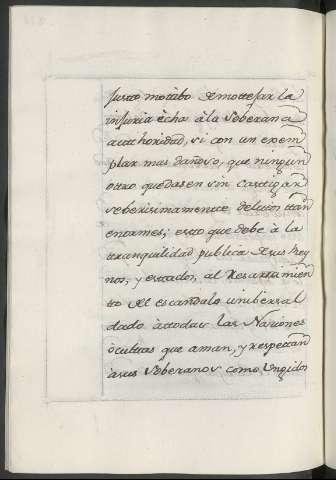 justo motibo de mottejar la
injuria écha à la Soberana
autthoridad, si con un exem
plar mas dañoso, que ningun
otro quedasen sin casttigar
seberisimamente delitos ttan
enormes; estto que debe à la
tranquilidad publica de sus Rey
nos, y estados, al Resarsimien
to del escandalo unibersal
dado àttodas las Naciones
òcultas que aman, y respettan
àsus Soberanos como Ungidos